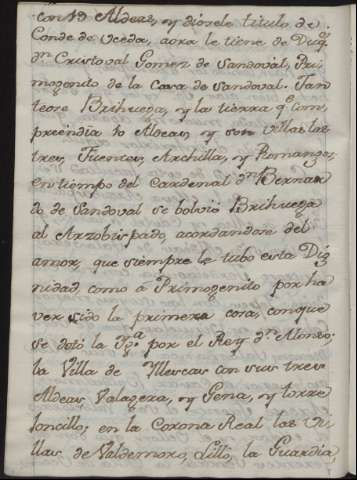 con 19 Aldeas, y diosele titulo de
Conde de Uceda, aora le tiene de Duq.
Dn Cristoval Gomez de Sandoval, Pri
mogenito de la Casa de Sandoval. Tan
teose Brihuega, y la tierra qe Com
prendia 10 Aldeas, y son villas las
tres, Fuentes, Archilla, y Romanços,
en tiempo del Cardenal Dn Bernar
do de Sandoval se bolvió Brihuega
al Arzobispado, acordandose del
amor, que siempre le tubo esta Dig
nidad, como a Primogenito por ha
ver sido la primera cosa, con que
se dotó la Yga por el Rey Dn Alonso;
la Villa de Yllescas con sus tres
Aldeas, Valaguera, y Gena, y torre
joncillo; en la Corona Real las Vi
llas de Valdemoro, Lillo, la Guardia,